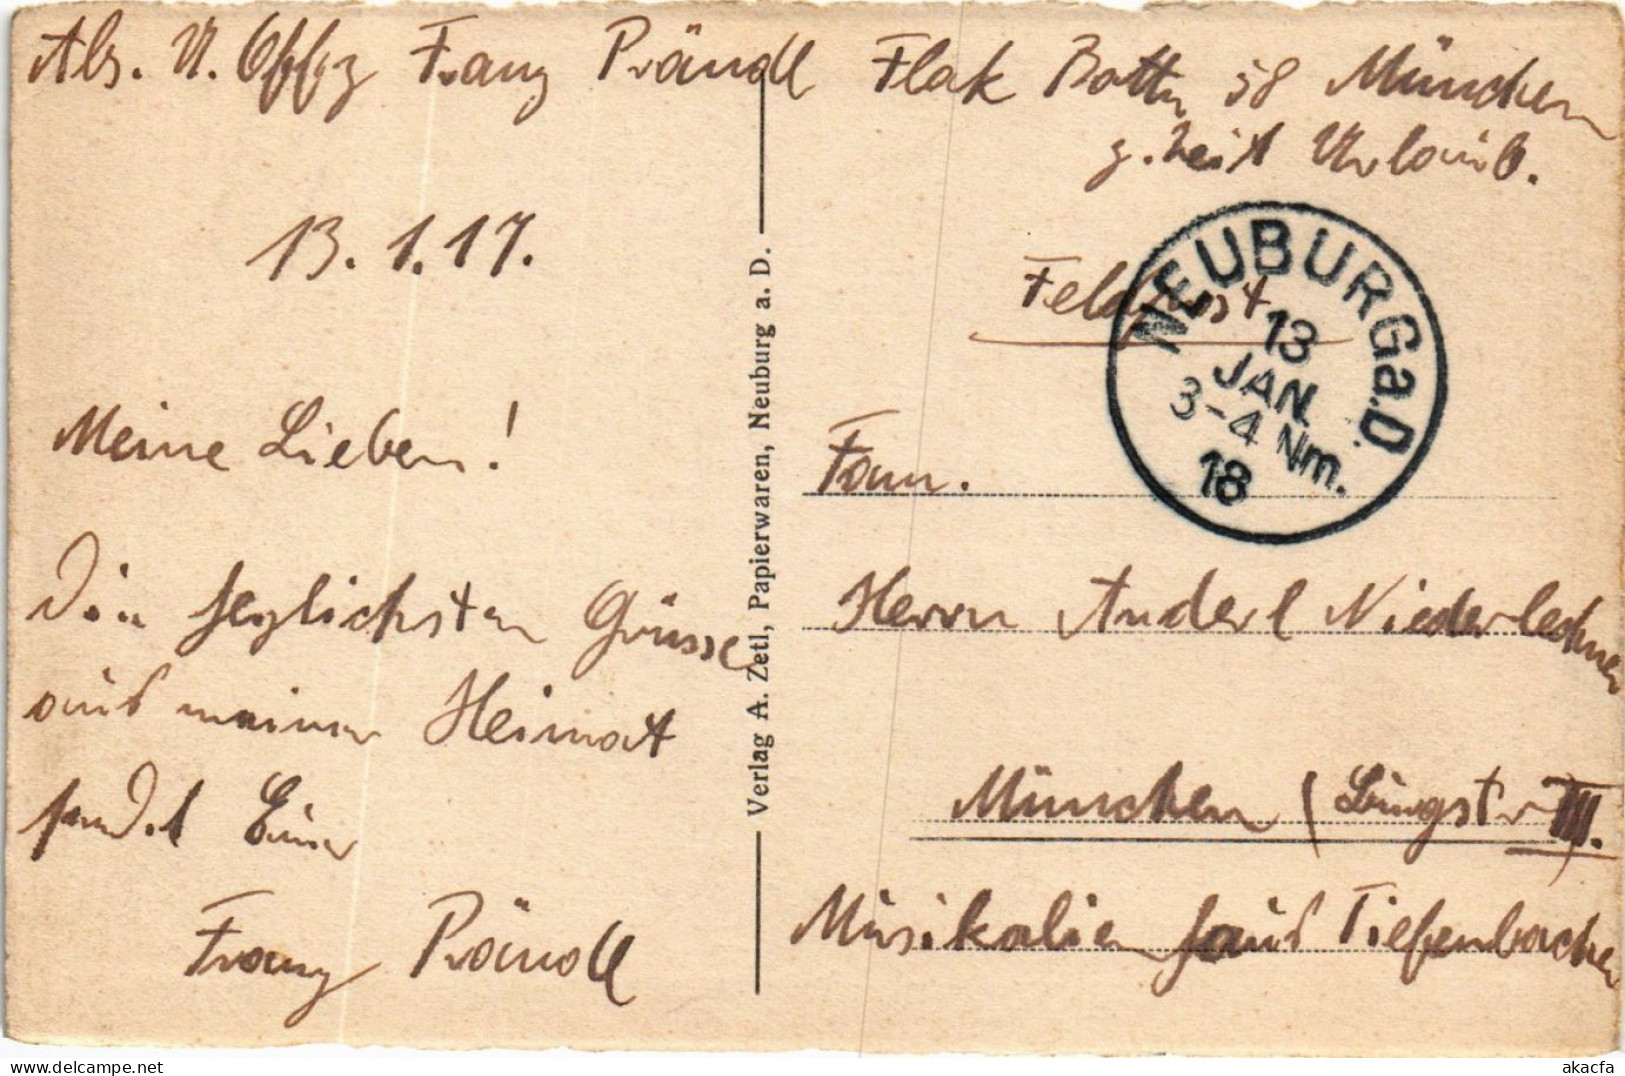 Abs. U. Offz Franz Prändl Flak Battr 58 München
z. Zeit Urlaub.
13.1.17.
Feldpost
NEUBURG a.D.
13
JAN.
3-4 Nm.
18
Meine Lieben!
Fam.
Die herzlichsten Grüsse
aus meiner Heimat
sendet Euer
Franz Prändl
Verlag A. Zetl, Papierwaren, Neuburg a. D.
Herrn Anderl Niederlechner
München
III.
Musikalien haus Tiefenbacher
akacfa